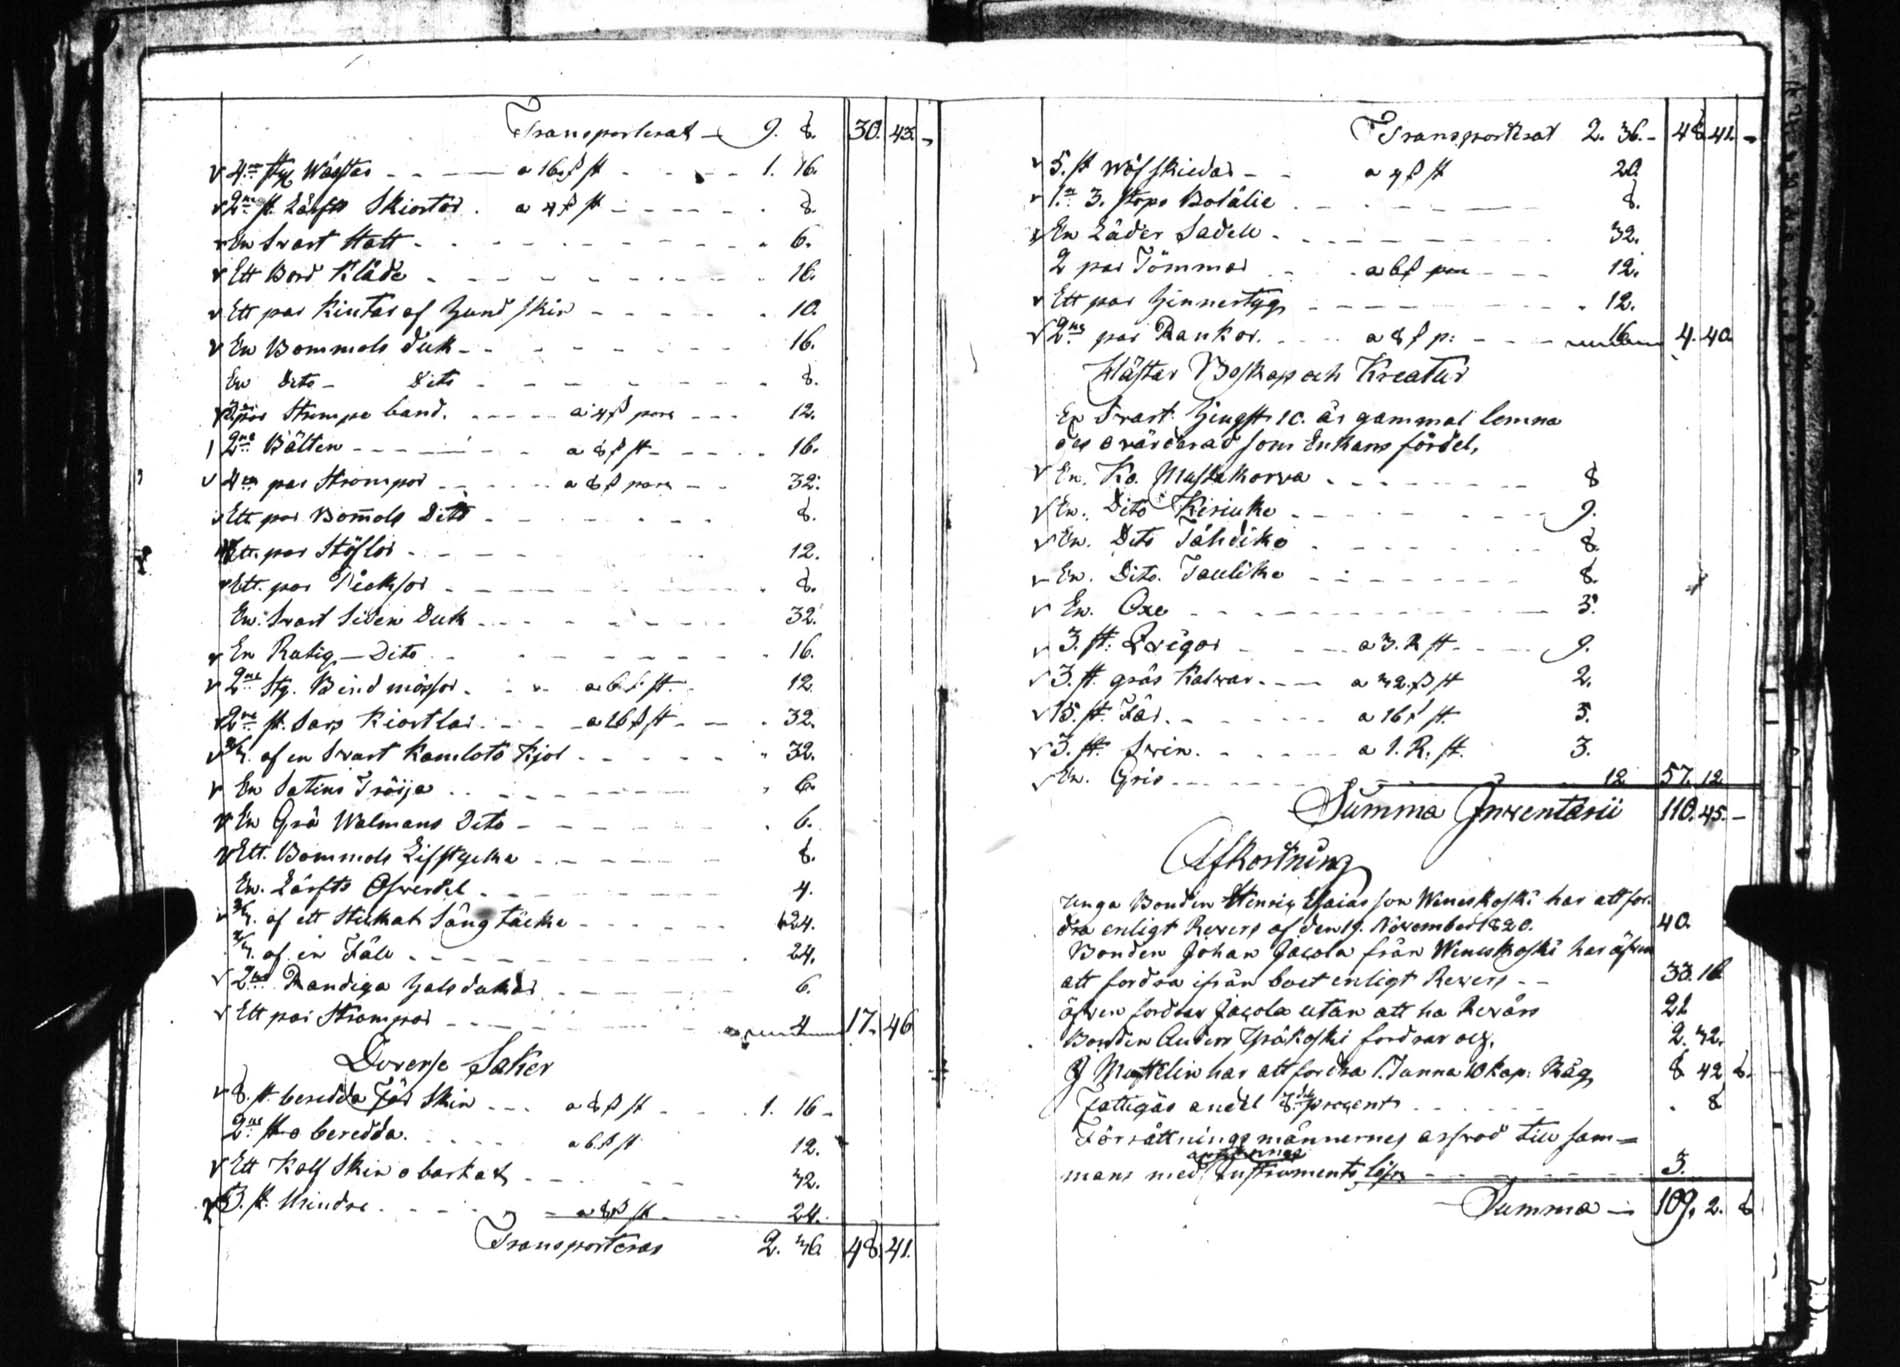 Transporterat 9. 8. 30. 43.
4. Wästar a 16 ß st 1. 16.
2ne st. Lärfts Skiortor a 4 ß st 8.
En Svart Hatt 6.
Ett Bord Kläde 16.
Ett par Kintar af Hund skin 10.
En Bommols duk 16.
En Dito Dito 8.
par Strumpe band. a 4 ß para 12.
2ne Bälten a 8 ß st 16.
4 par Strompor a 8 ß para 32.
Ett par Bomols Dito 8.
Ett par Stöflor 12.
Ett par Pieksor 8.
En Svart Siden Duk 32.
En Rutig Dito 16.
2ne Sty. Bindmössor a 6 ß st. 12.
2ne st. Sars Kiortlar a 16 ß st 32.
af en Svart Kamlots Kjol 32.
En Satins Tröija 6.
En Grå Walmans Dito 6.
Ett Bommols Lifstycke 8.
En Lärfts 4.
af ett Stickat Sängtäcke 24.
af en Fäll 24.
2ne Randiga Halsdukar 6.
Ett par Strompor 4 17. 46
Diverse Saker
8. st. beredda Får Skin a 8 ß st 1. 16
2ne st o beredda a 6 ß st 12.
Ett Kalf Skin obarkat 32.
3. st. Mindre a 8 ß st 24.
Transporteras 2. 36. 48. 41.
Transporterat 2. 36. 48. 41.
5. st Wäfskiedar a 4 ß st 20.
1. 3. stops Botälie 8.
En Läder Sadell 32.
2 par Tömmar a 6 ß par 12.
Ett par Hinnertyg 12.
2ne par Rankor. a 8 ß p: 16 4. 40.
Hästar Boskap och Kreatur
En Svart Hingst 10. år gammal lemna
des ovärderad som Enkans fördel.
En. Ko. Mustakorva 8
En. Dito Kiriuko 9.
En. Dito Tähdikö 8.
En. Dito. Taulike 8.
En. Oxe 5.
3. st. Qvigor a 3. R st 9.
3. st. gräs Kalvar a 32 ß st 2.
15. st. Får a 16 ß st. 5.
3. st. Svin a 1. R. st. 3.
En. Gris 12 57. 12
Summa Inventarii 110. 45.
Afkortning
unga Bonden Henric Esaiasson Wineskoski har att for
dra enligt Revers af den 19. November 1820. 40.
Bonden Johan Jacola från Wineskoski har äfven
att fordra ifrån boet enligt Revers 33. 16
äfven fordrar Jacola utan att ha Revärs 21
Bonden Anders fordrar ock. 2. 32.
har att fordra 1. Tunna 10 kap: Råg 8 42 8.
Fattigas andel procent 8
Förrättningsmännernes arfvod till sam=
mans med Instruments lösn 3.
Summa 109. 2. 8